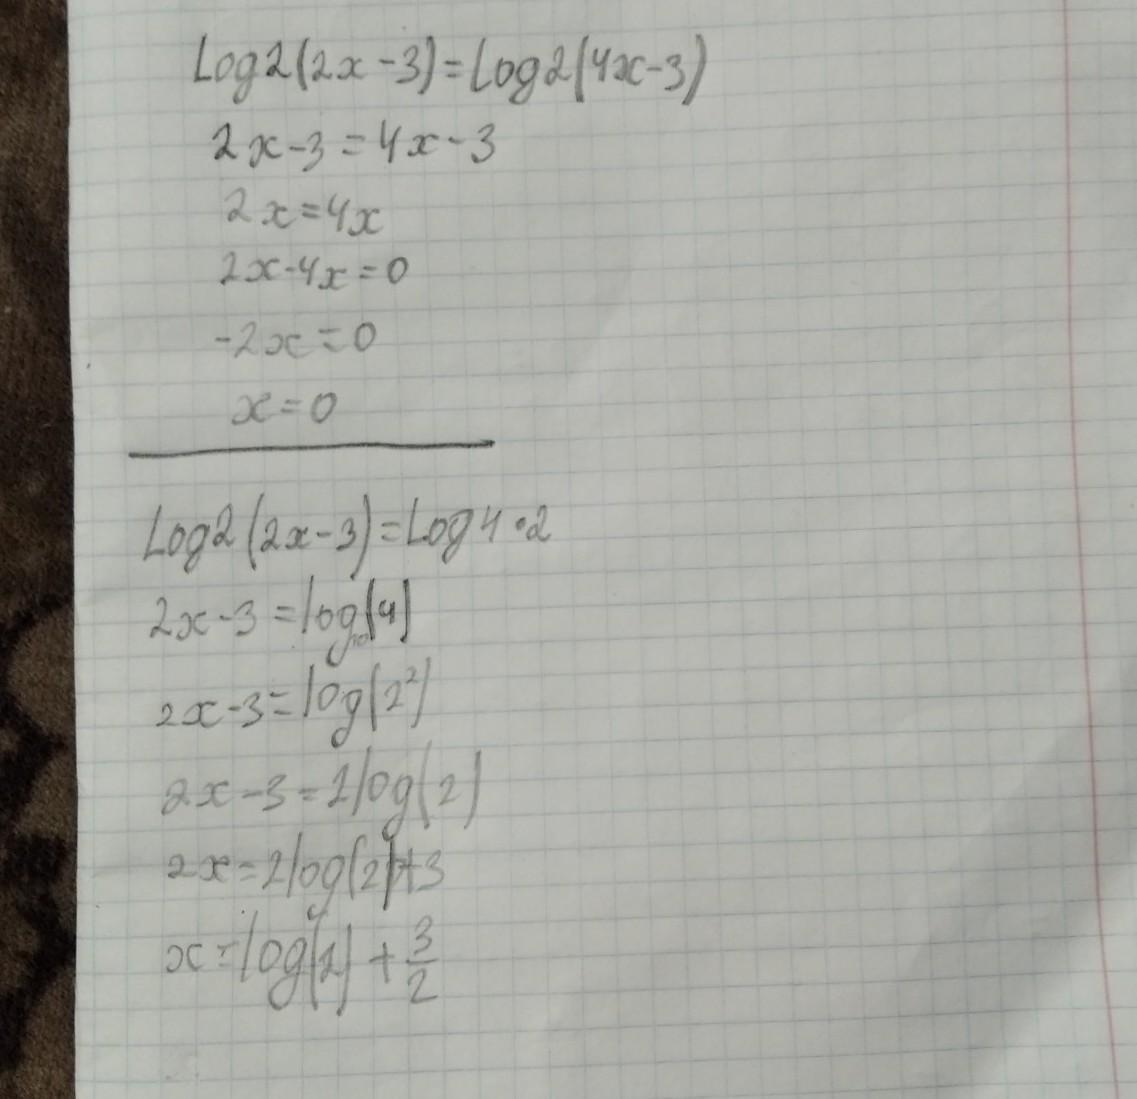 Log2(2x-3)=Log2(4x-3)
2x-3=4x-3
2x=4x
2x-4x=0
-2x=0
x=0
Log2(2x-3)=Log4•2
2x-3=log(4)
2x-3=log(2²)
2x-3=2log(2)
2x=2log(2)+3
x=log(2)+3/2